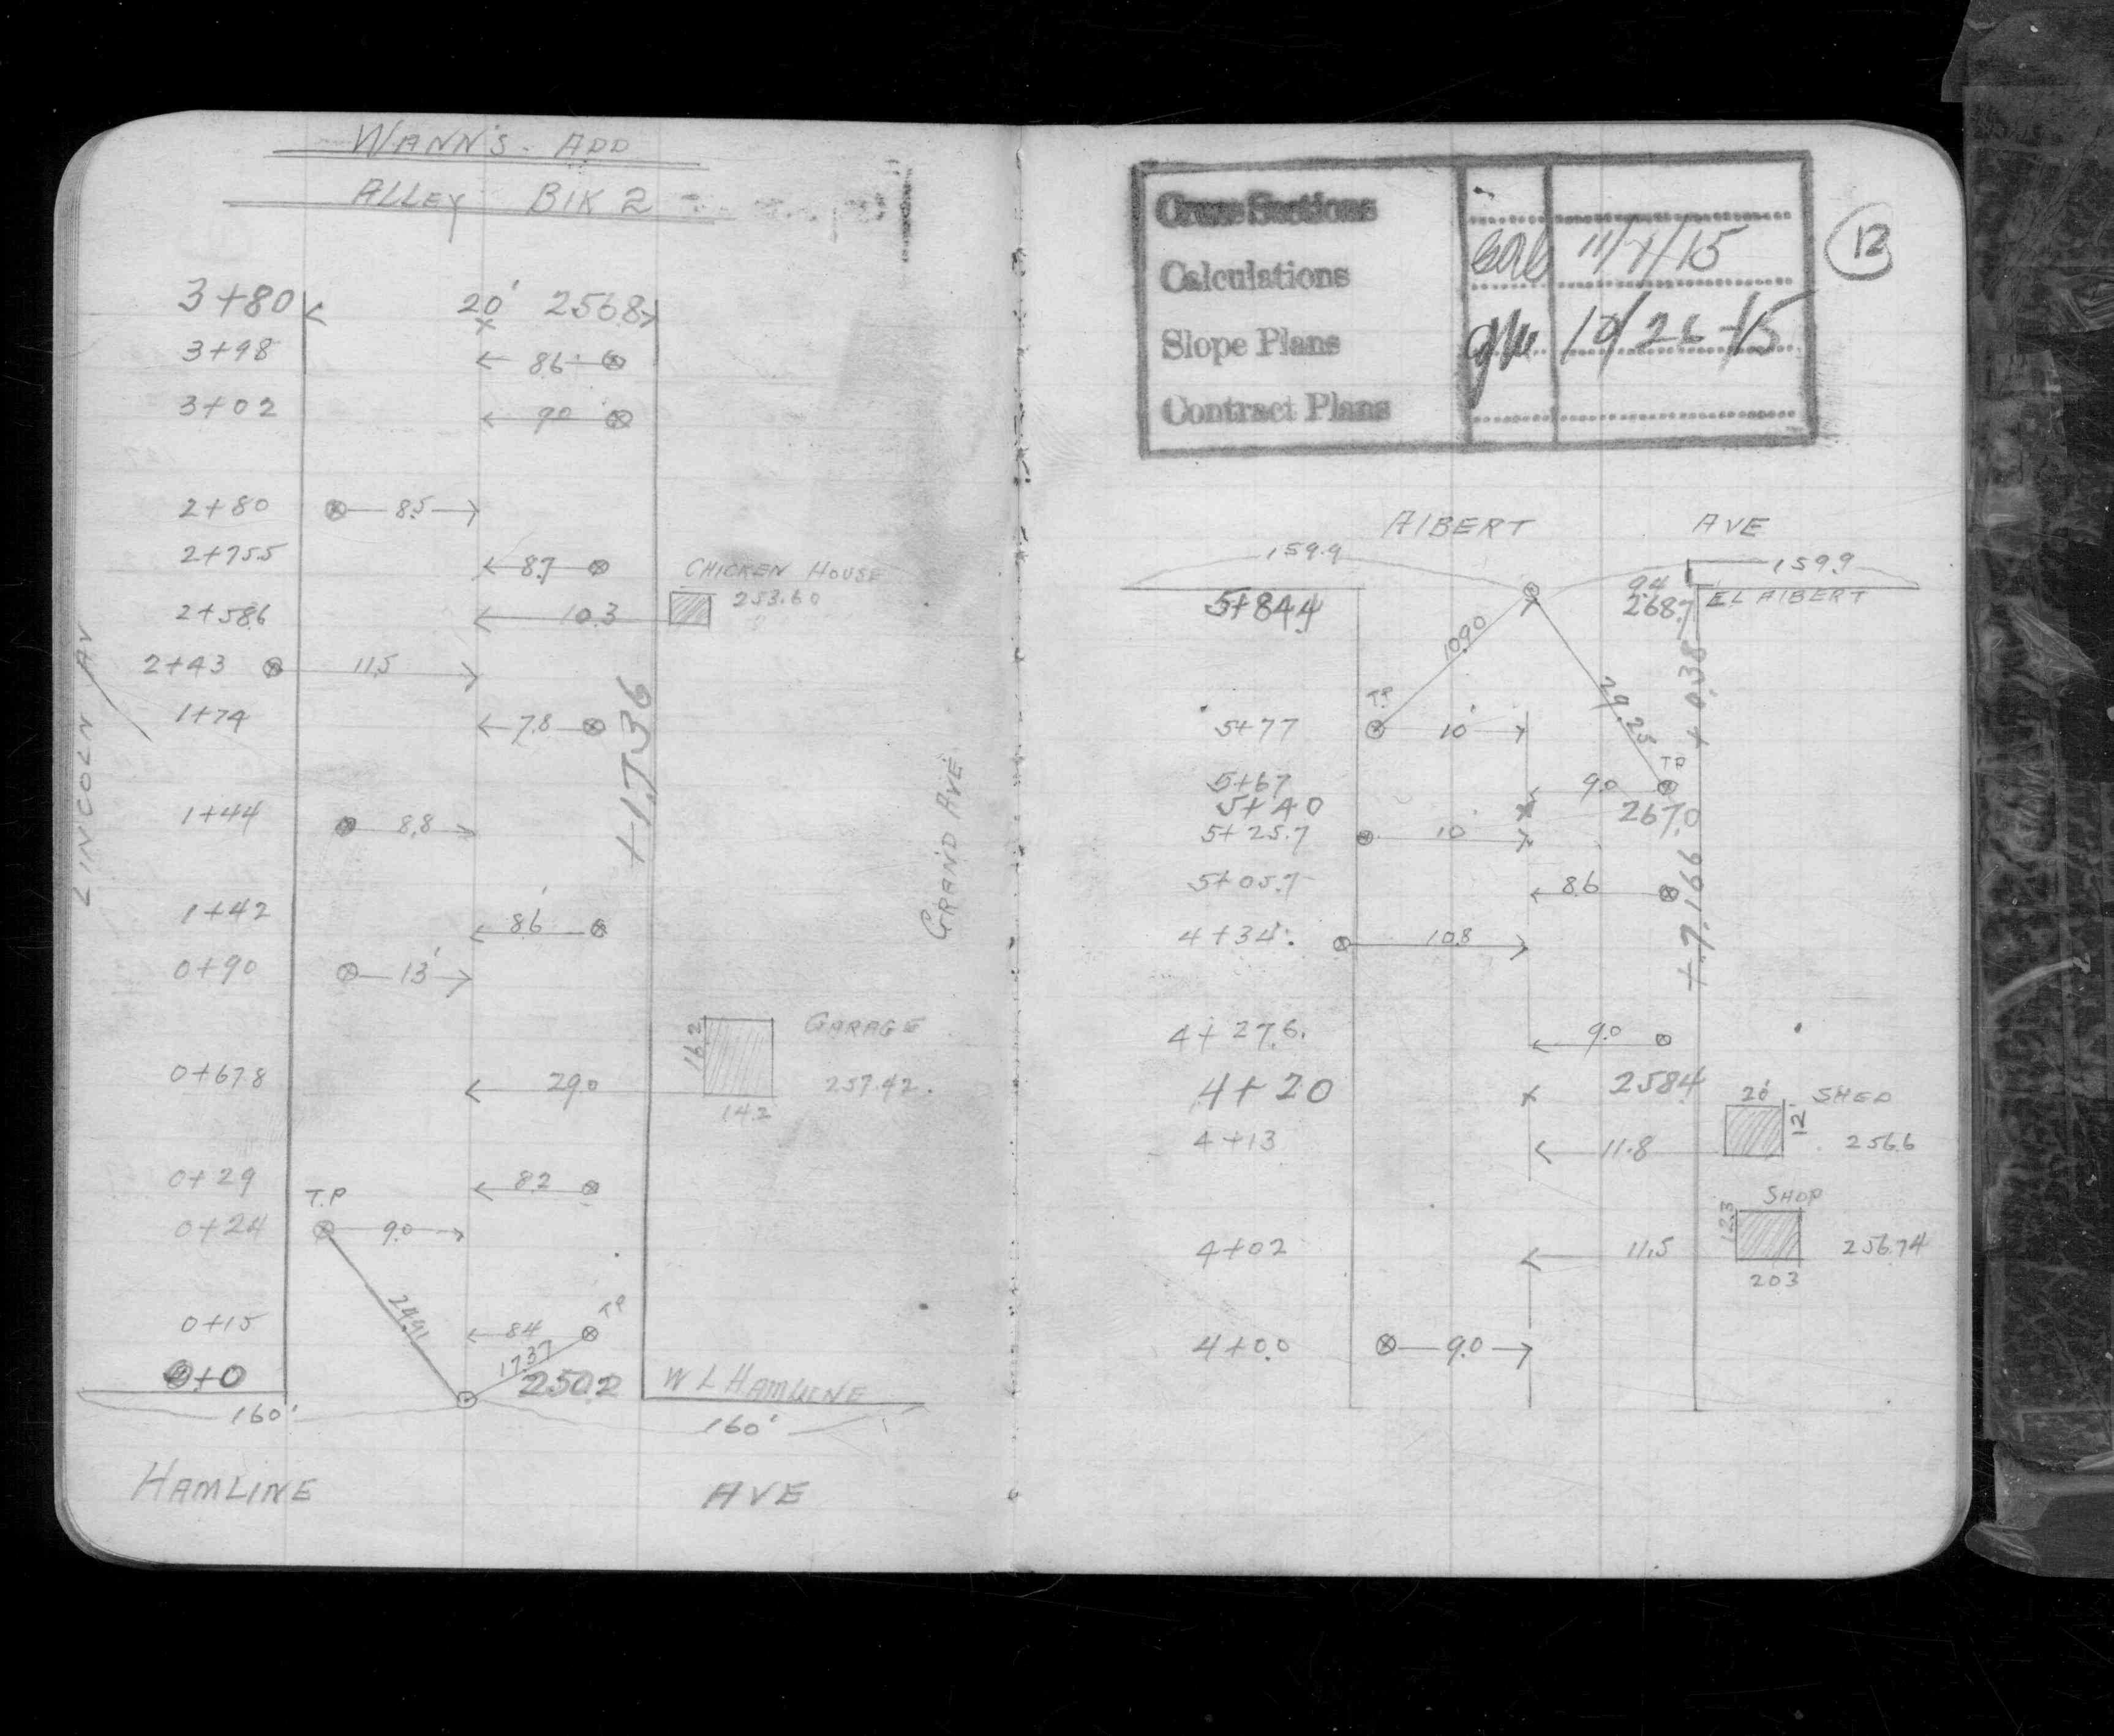 WANN'S. ADD
ALLEY BlK 2
3+80 20' 256.8
3+98 8.6'
3+02 9.0
2+80 8.5
2+75.5 8.7
CHICKEN HOUSE
253.60
2+58.6 10.3
2+43 11.5
1+74 7.8
+1.736
LINCOLN AV
GRAND AVE
1+44 8.8
1+42 8.6'
0+90 13'
16.2 GARAGE
0+67.8 29.0 257.42.
14.2
0+29 8.2
T.P
0+24 9.0
24.41
0+15 8.4 T.P
17.37
0+0 250.2 W L HAMLINE
160' 160'
HAMLINE AVE
12
Cross Sections
Calculations 11/1/15
Slope Plans 10/26/15
Contract Plans
AlBERT AVE
159.9 159.9
9.4
5+84.4 268.7 EL AlBERT
10.90
29.25
+0.38
T.P
5+77 10'
T.P
5+67 9.0
5+40 267.0
5+25.7 10'
5+05.7 8.6
+7.166
4+34. 10.8
4+27.6. 9.0
4+20 258.4
20' SHED
12'
4+13 11.8 256.6
SHOP
12.3
4+02 11.5 256.74
20.3
4+0.0 9.0